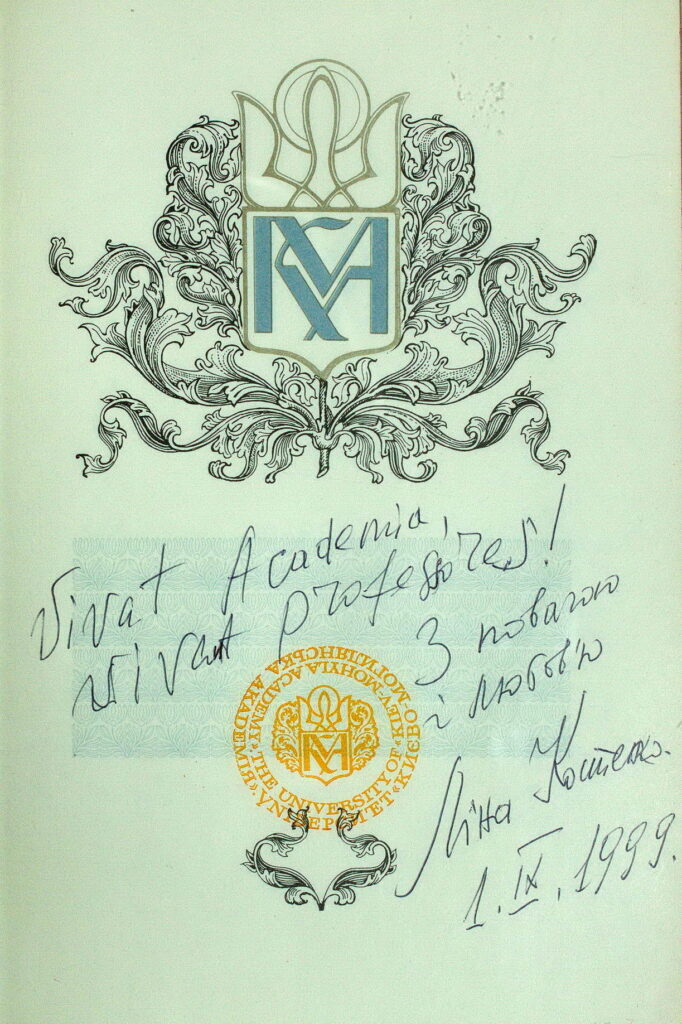 КМА
Vivat Academia,
vivat professores!
З повагою
і любов'ю
Ліна Костенко.
1.IX.1999.
"THE UNIVERSITY OF "KIEV-MOHYLA ACADEMY"
УНІВЕРСИТЕТ "КИЄВО-МОГИЛЯНСЬКА АКАДЕМІЯ"
КМА